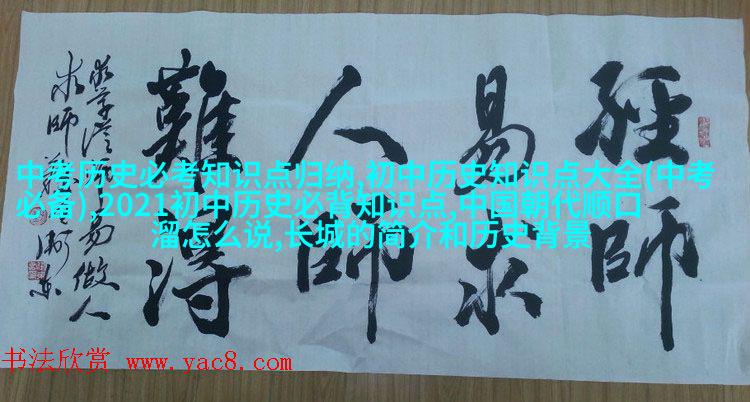 經師
易求
人師
難得
中考历史必考知识点归纳,初中历史知识点大全(中考
必备),2021初中历史必背知识点,中国朝代顺口
溜怎么说,长城的简介和历史背景
书法欣赏 www.yac8.com